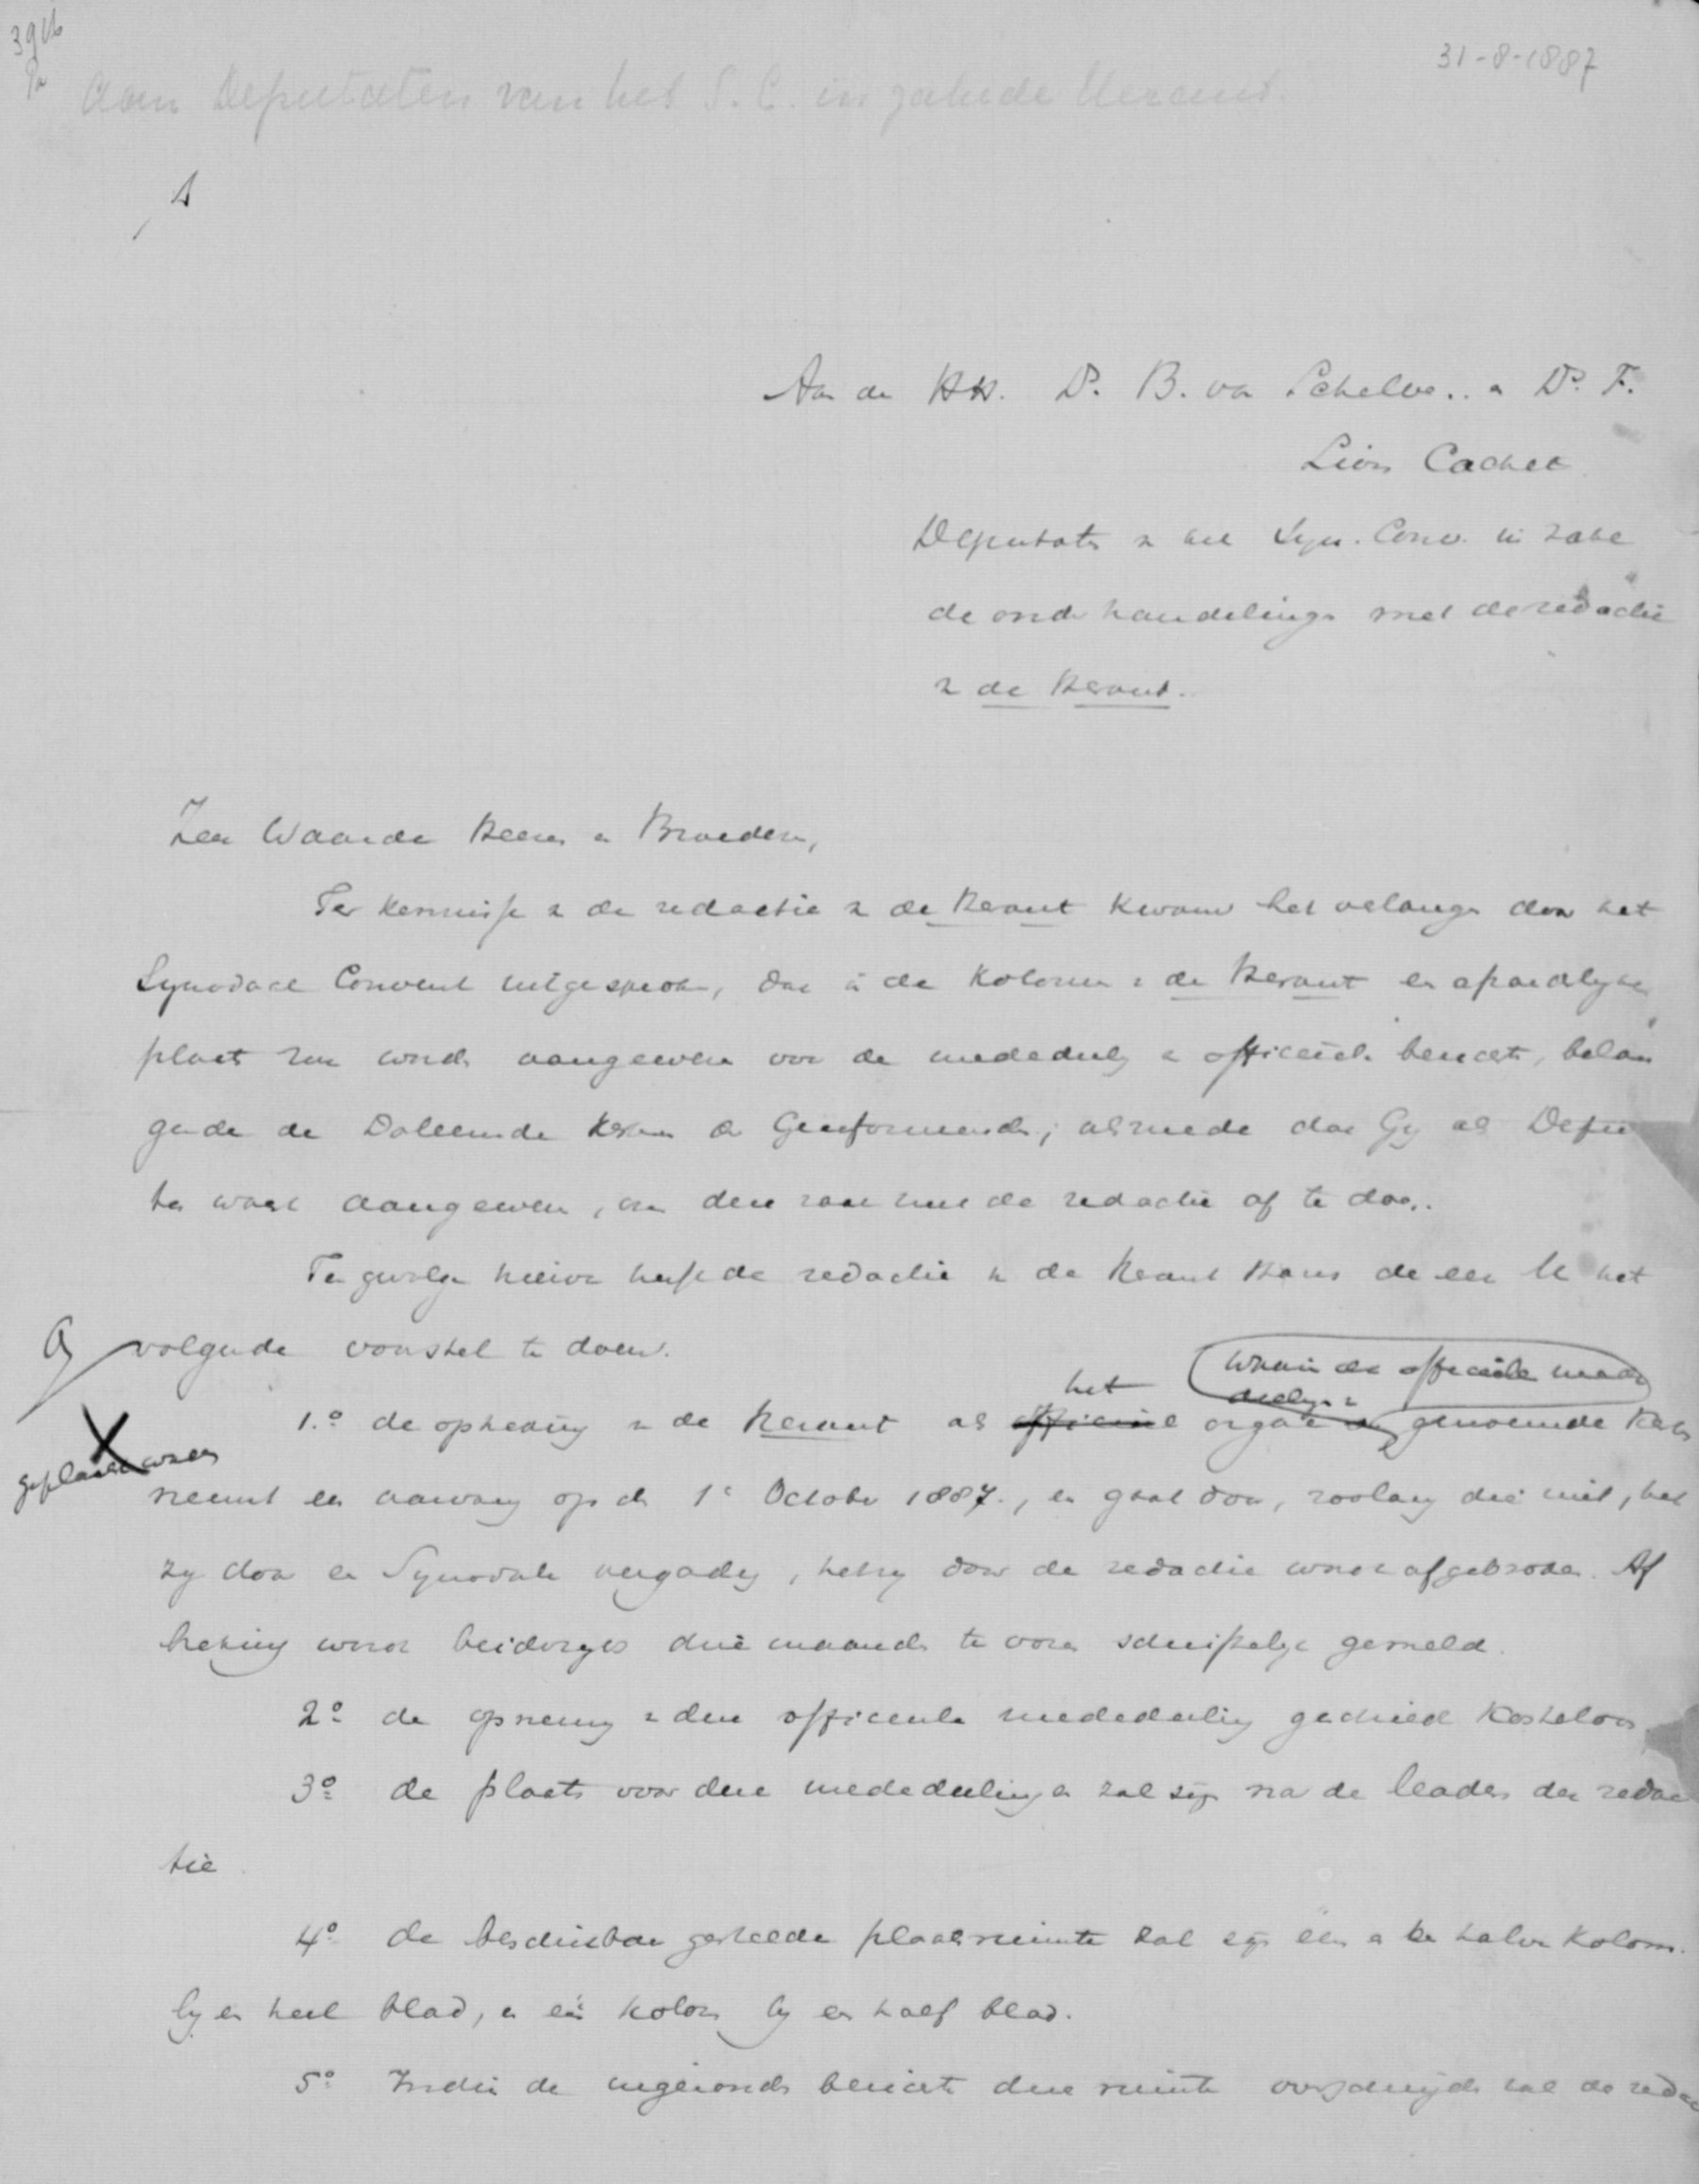 31-8-1887
Aan Deputaten van het S. C. in zake de Heraut.
Aan de HH. Ds. B. van Schelve.. en Ds. F.
Lion Cachet
Deputaten het Syn. Conv. in zake
de onderhandelingen met de redactie
de Heraut.
Zeer Waarde Heeren en Broeders,
Ter kennisse de redactie de Heraut kwam het verlangen door het
Synodaal Convent uitgesproken, dat in de kolommen de Heraut een afzonderlijke
plaats zou worden aangewezen voor de mededeeling officieele berichten, belan
gende de Doleerende Kerken Gereformeerde; alsmede dat Gij als Depu
ten waart aangewezen, om deze zaak met de redactie af te doen.
Ten gevolge hiervan heeft de redactie de Heraut thans de eer U het
volgende voorstel te doen.
waarin de officieele mede
deelingen
het
1.o de optreding de Heraut als officieel orgaan genoemde Kerken
geplaatst worden
neemt een aanvang op den 1e October 1887., en gaat door, zoolang die niet, het
zij door een Synodale vergadering, hetzij door de redactie wordt afgebroken. Af
breking wordt beiderzijds drie maanden te voren schriftelijk gemeld.
2o de opneming deze officieele mededeeling geschied kosteloos
3o de plaats voor deze mededeelingen zal zijn na de leaders der redac
tie
4o de beschikbaar gestelde plaatsruimte zal zijn een en een halve kolom
bij een heel blad, en één kolom bij een half blad.
5o Indien de ingezonden berichten deze ruimte overschrijden zal de redac